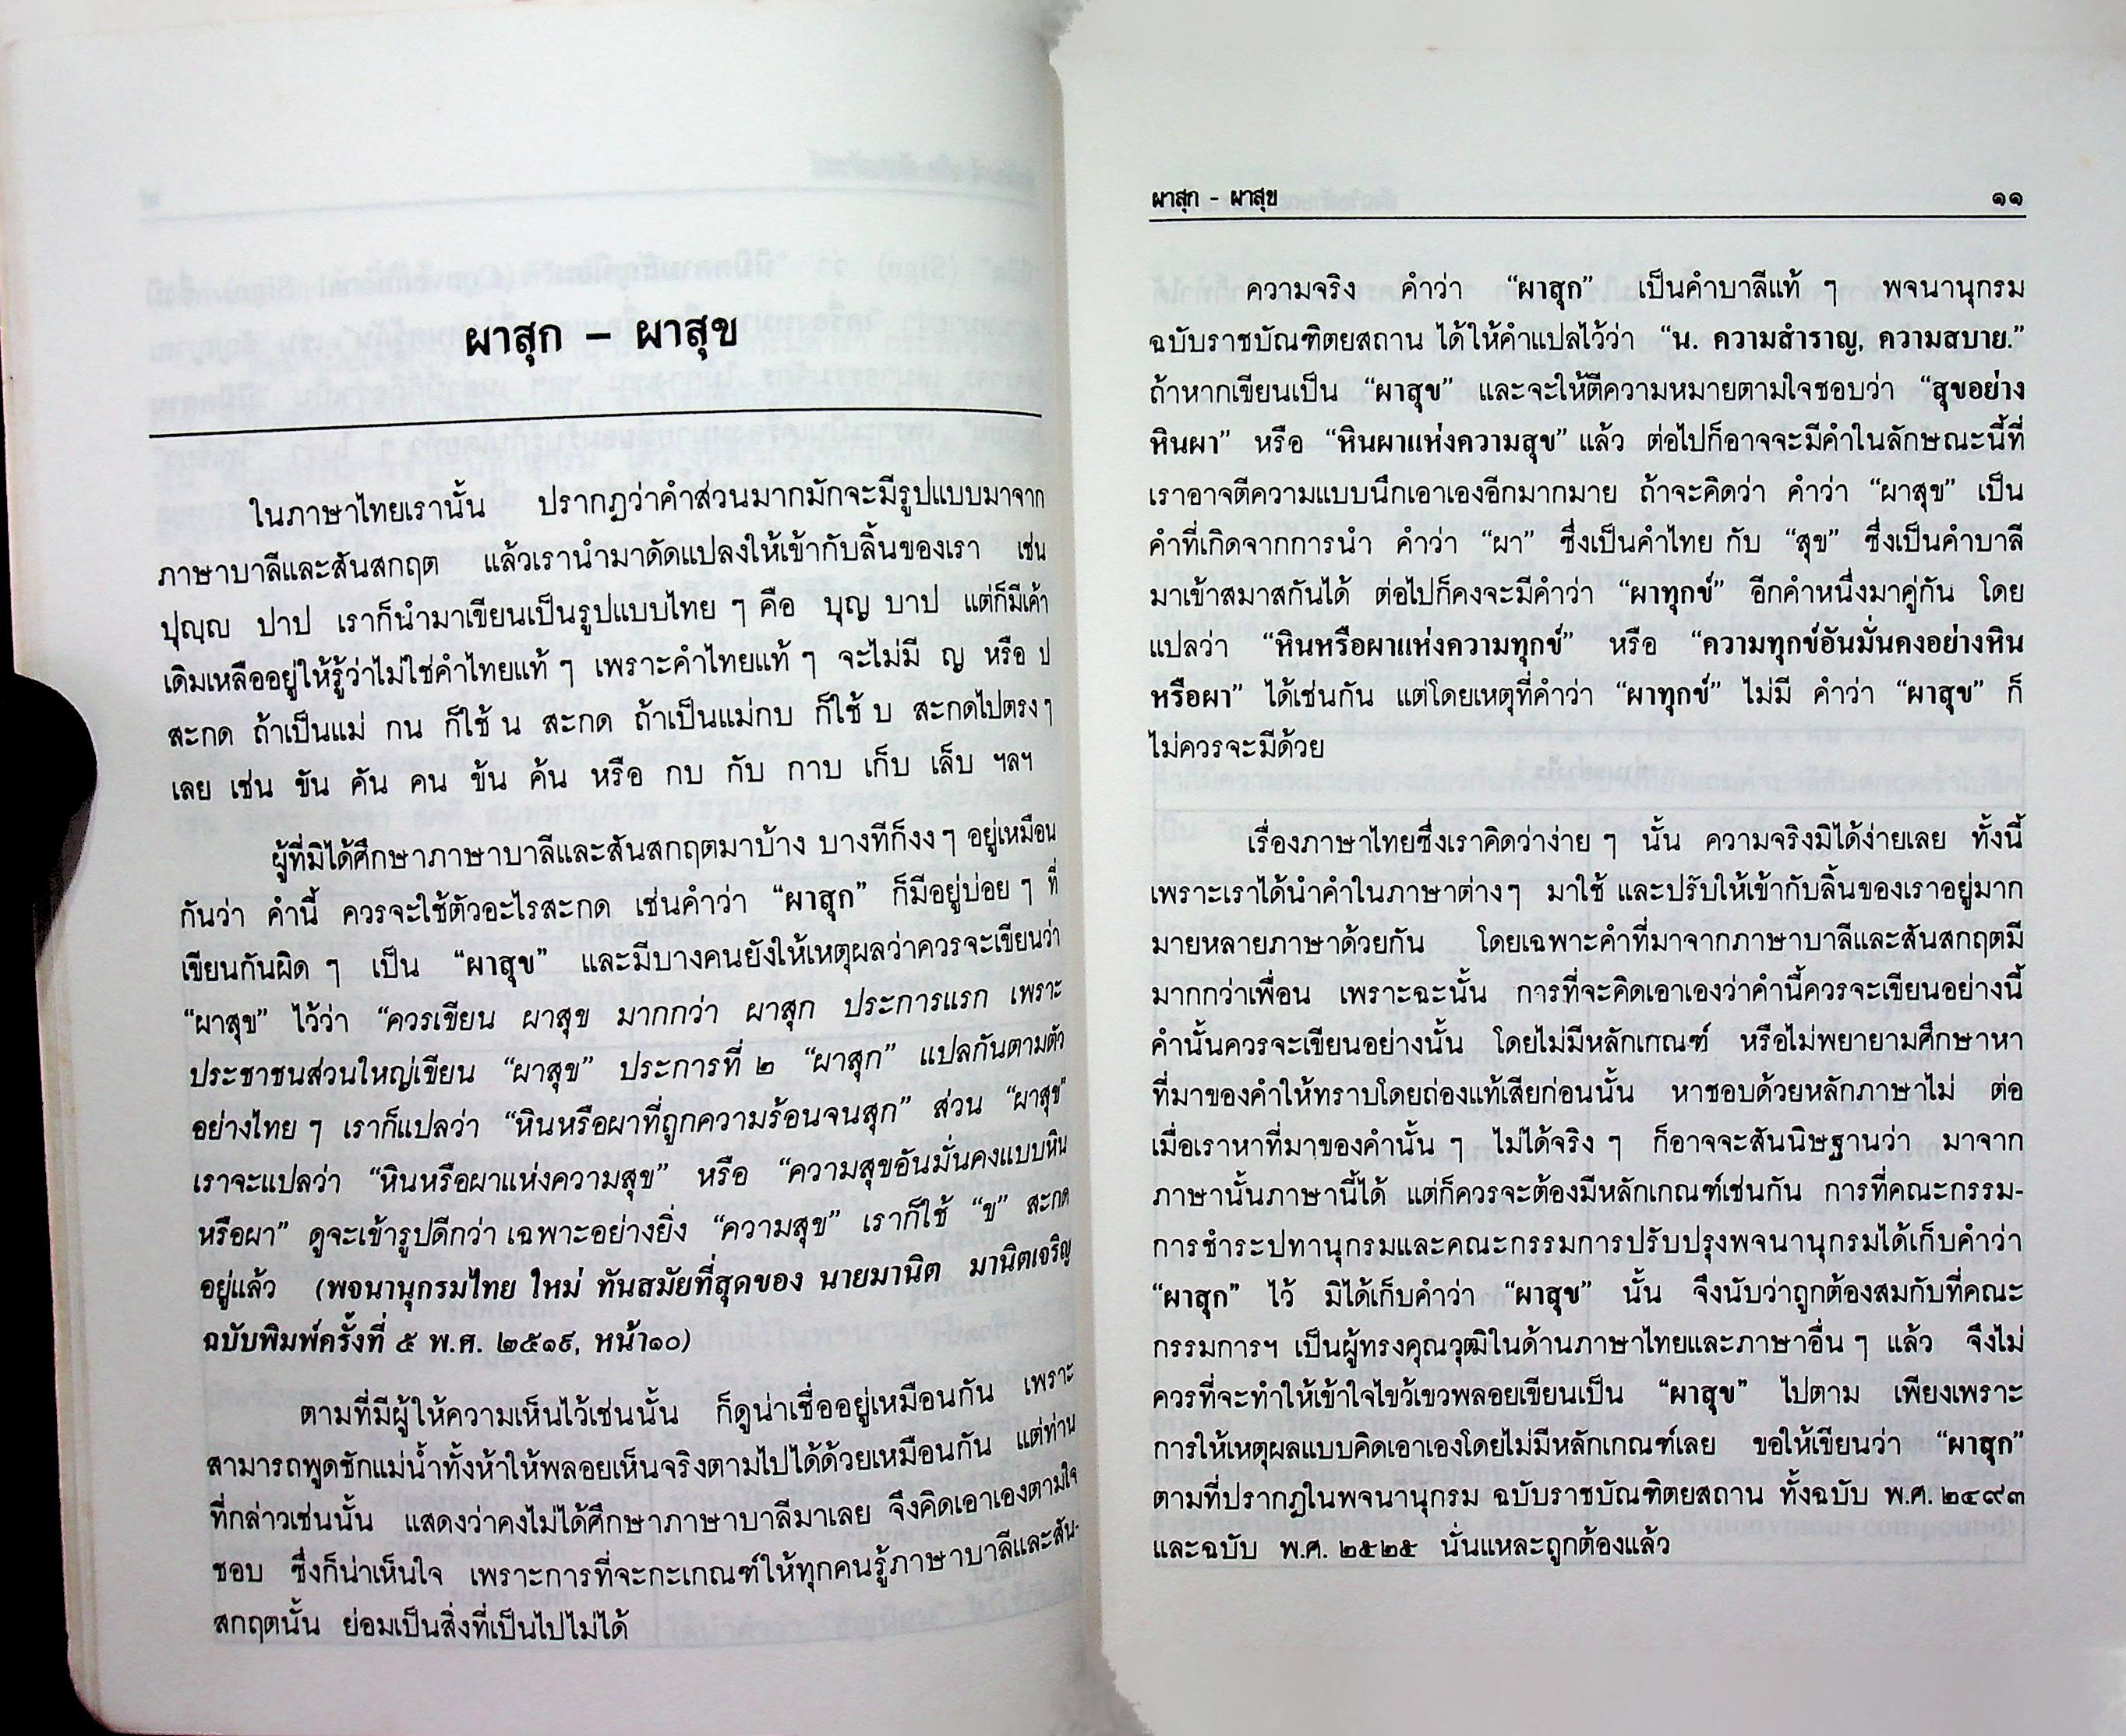 ผาสุก – ผาสุข
ในภาษาไทยเรานั้น ปรากฏว่าคำส่วนมากมักจะมีรูปแบบมาจาก
ภาษาบาลีและสันสกฤต แล้วเรานำมาดัดแปลงให้เข้ากับลิ้นของเรา เช่น
ปุญฺญ ปาป เราก็นำมาเขียนเป็นรูปแบบไทย ๆ คือ บุญ บาป แต่ก็มีเค้า
เดิมเหลืออยู่ให้รู้ว่าไม่ใช่คำไทยแท้ ๆ เพราะคำไทยแท้ ๆ จะไม่มี ญ หรือ ป
สะกด ถ้าเป็นแม่ กน ก็ใช้ น สะกด ถ้าเป็นแม่กบ ก็ใช้ บ สะกดไปตรง ๆ
เลย เช่น ขัน คัน คน ข้น ค้น หรือ กบ กับ กาบ เก็บ เล็บ ฯลฯ
ผู้ที่มิได้ศึกษาภาษาบาลีและสันสกฤตมาบ้าง บางทีก็งง ๆ อยู่เหมือน
กันว่า คำนี้ ควรจะใช้ตัวอะไรสะกด เช่นคำว่า “ผาสุก” ก็มีอยู่บ่อย ๆ ที่
เขียนกันผิด ๆ เป็น “ผาสุข” และมีบางคนยังให้เหตุผลว่าควรจะเขียนว่า
“ผาสุข” ไว้ว่า “ควรเขียน ผาสุข มากกว่า ผาสุก ประการแรก เพราะ
ประชาชนส่วนใหญ่เขียน “ผาสุข” ประการที่ ๒ “ผาสุก” แปลกันตามตัว
อย่างไทย ๆ เราก็แปลว่า “หินหรือผาที่ถูกความร้อนจนสุก” ส่วน “ผาสุข”
เราจะแปลว่า “หินหรือผาแห่งความสุข” หรือ “ความสุขอันมั่นคงแบบหิน
หรือผา” ดูจะเข้ารูปดีกว่า เฉพาะอย่างยิ่ง “ความสุข” เราก็ใช้ “ข” สะกด
อยู่แล้ว (พจนานุกรมไทย ใหม่ ทันสมัยที่สุดของ นายมานิต มานิตเจริญ
ฉบับพิมพ์ครั้งที่ ๕ พ.ศ. ๒๕๑๙, หน้า๑๐)
ตามที่มีผู้ให้ความเห็นไว้เช่นนั้น ก็ดูน่าเชื่ออยู่เหมือนกัน เพราะ
สามารถพูดชักแม่น้ำทั้งห้าให้พลอยเห็นจริงตามไปได้ด้วยเหมือนกัน แต่ท่าน
ที่กล่าวเช่นนั้น แสดงว่าคงไม่ได้ศึกษาภาษาบาลีมาเลย จึงคิดเอาเองตามใจ
ชอบ ซึ่งก็น่าเห็นใจ เพราะการที่จะกะเกณฑ์ให้ทุกคนรู้ภาษาบาลีและสัน-
สกฤตนั้น ย่อมเป็นสิ่งที่เป็นไปไม่ได้
ผาสุก - ผาสุข ๑๑
ความจริง คำว่า “ผาสุก” เป็นคำบาลีแท้ ๆ พจนานุกรม
ฉบับราชบัณฑิตยสถาน ได้ให้คำแปลไว้ว่า “น. ความสำราญ, ความสบาย.”
ถ้าหากเขียนเป็น “ผาสุข” และจะให้ตีความหมายตามใจชอบว่า “สุขอย่าง
หินผา” หรือ “หินผาแห่งความสุข” แล้ว ต่อไปก็อาจจะมีคำในลักษณะนี้ที่
เราอาจตีความแบบนึกเอาเองอีกมากมาย ถ้าจะคิดว่า คำว่า “ผาสุข” เป็น
คำที่เกิดจากการนำ คำว่า “ผา” ซึ่งเป็นคำไทย กับ “สุข” ซึ่งเป็นคำบาลี
มาเข้าสมาสกันได้ ต่อไปก็คงจะมีคำว่า “ผาทุกข์” อีกคำหนึ่งมาคู่กัน โดย
แปลว่า “หินหรือผาแห่งความทุกข์” หรือ “ความทุกข์อันมั่นคงอย่างหิน
หรือผา” ได้เช่นกัน แต่โดยเหตุที่คำว่า “ผาทุกข์” ไม่มี คำว่า “ผาสุข” ก็
ไม่ควรจะมีด้วย
เรื่องภาษาไทยซึ่งเราคิดว่าง่าย ๆ นั้น ความจริงมิได้ง่ายเลย ทั้งนี้
เพราะเราได้นำคำในภาษาต่างๆ มาใช้ และปรับให้เข้ากับลิ้นของเราอยู่มาก
มายหลายภาษาด้วยกัน โดยเฉพาะคำที่มาจากภาษาบาลีและสันสกฤตมี
มากกว่าเพื่อน เพราะฉะนั้น การที่จะคิดเอาเองว่าคำนี้ควรจะเขียนอย่างนี้
คำนั้นควรจะเขียนอย่างนั้น โดยไม่มีหลักเกณฑ์ หรือไม่พยายามศึกษาหา
ที่มาของคำให้ทราบโดยถ่องแท้เสียก่อนนั้น หาชอบด้วยหลักภาษาไม่ ต่อ
เมื่อเราหาที่มาของคำนั้น ๆ ไม่ได้จริง ๆ ก็อาจจะสันนิษฐานว่า มาจาก
ภาษานั้นภาษานี้ได้ แต่ก็ควรจะต้องมีหลักเกณฑ์เช่นกัน การที่คณะกรรม-
การชำระปทานุกรมและคณะกรรมการปรับปรุงพจนานุกรมได้เก็บคำว่า
“ผาสุก” ไว้ มิได้เก็บคำว่า “ผาสุข” นั้น จึงนับว่าถูกต้องสมกับที่คณะ
กรรมการฯ เป็นผู้ทรงคุณวุฒิในด้านภาษาไทยและภาษาอื่น ๆ แล้ว จึงไม่
ควรที่จะทำให้เข้าใจไขว้เขวพลอยเขียนเป็น “ผาสุข” ไปตาม เพียงเพราะ
การให้เหตุผลแบบคิดเอาเองโดยไม่มีหลักเกณฑ์เลย ขอให้เขียนว่า “ผาสุก”
ตามที่ปรากฏในพจนานุกรม ฉบับราชบัณฑิตยสถาน ทั้งฉบับ พ.ศ. ๒๔๙๓
และฉบับ พ.ศ. ๒๕๒๕ นั่นแหละถูกต้องแล้ว